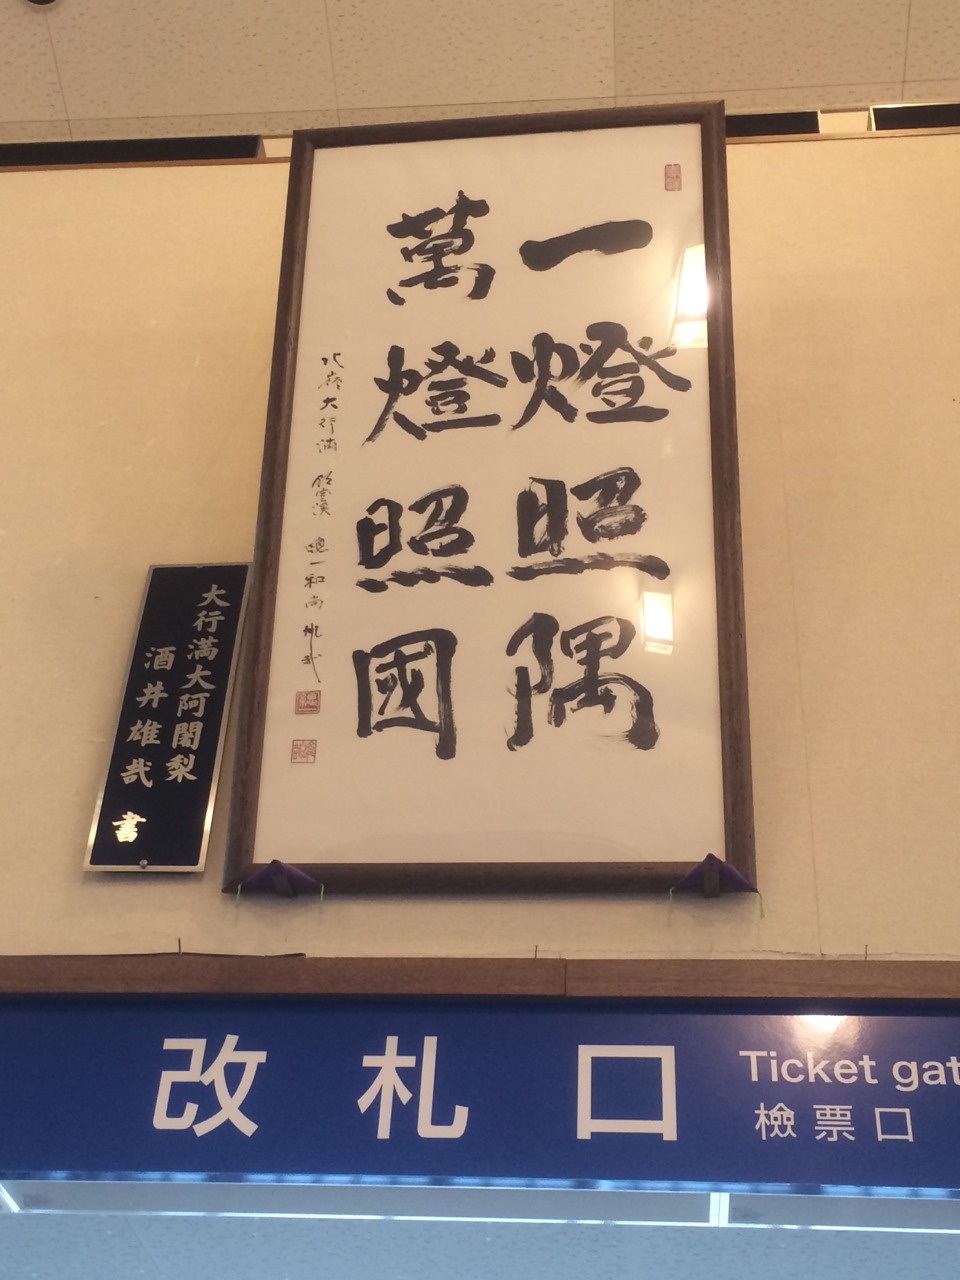 一燈照隅
萬燈照國
北嶺大行満
大行満大阿闍梨
酒井雄哉
書
改札口
Ticket gat
檢票口